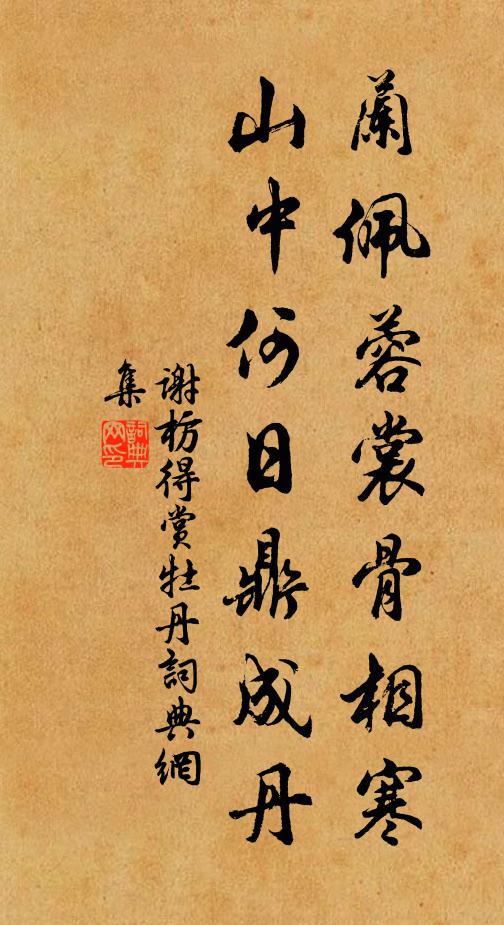 蘭佩蓉裳骨相寒
山中何日鼎成丹
謝枋得賞牡丹詞典網
集
詞典
网印